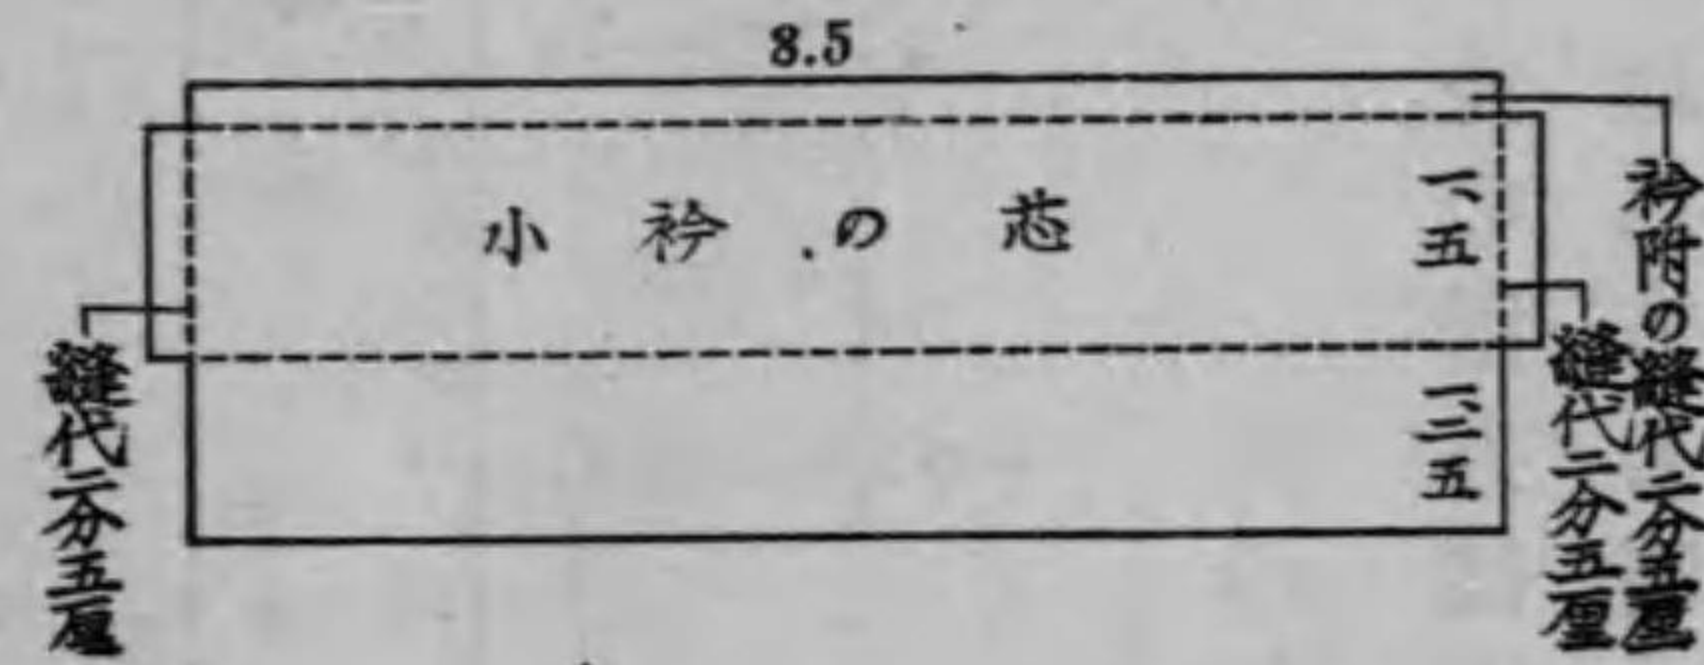 8.5
小衿の芯
一、五
一、二五
衿附の縫代二分五厘
縫代二分五厘
縫代二分五厘